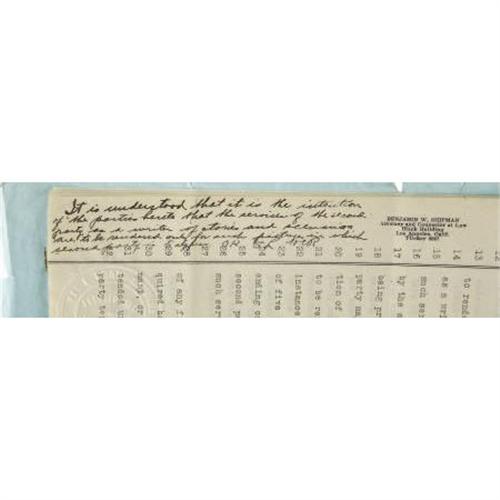 It is understood that it is the intention
of the parties hereto that the services of the second
party as a writer of stories and scenarios
are to be rendered only for such pictures in which
second party is to appear
BENJAMIN W. SHIPMAN
Attorney and Counselor at Law
Los Angeles, Calif.
12
13
14
15
16
17
18
19
20
21
22
23
24
25
26
27
28
29
30
31
32
to rende
as a wri
such ser
by the s
being pr
party ma
tion of
to be re
instance
of five
ending o
second p
such ser
of any f
quired h
tended u
party te